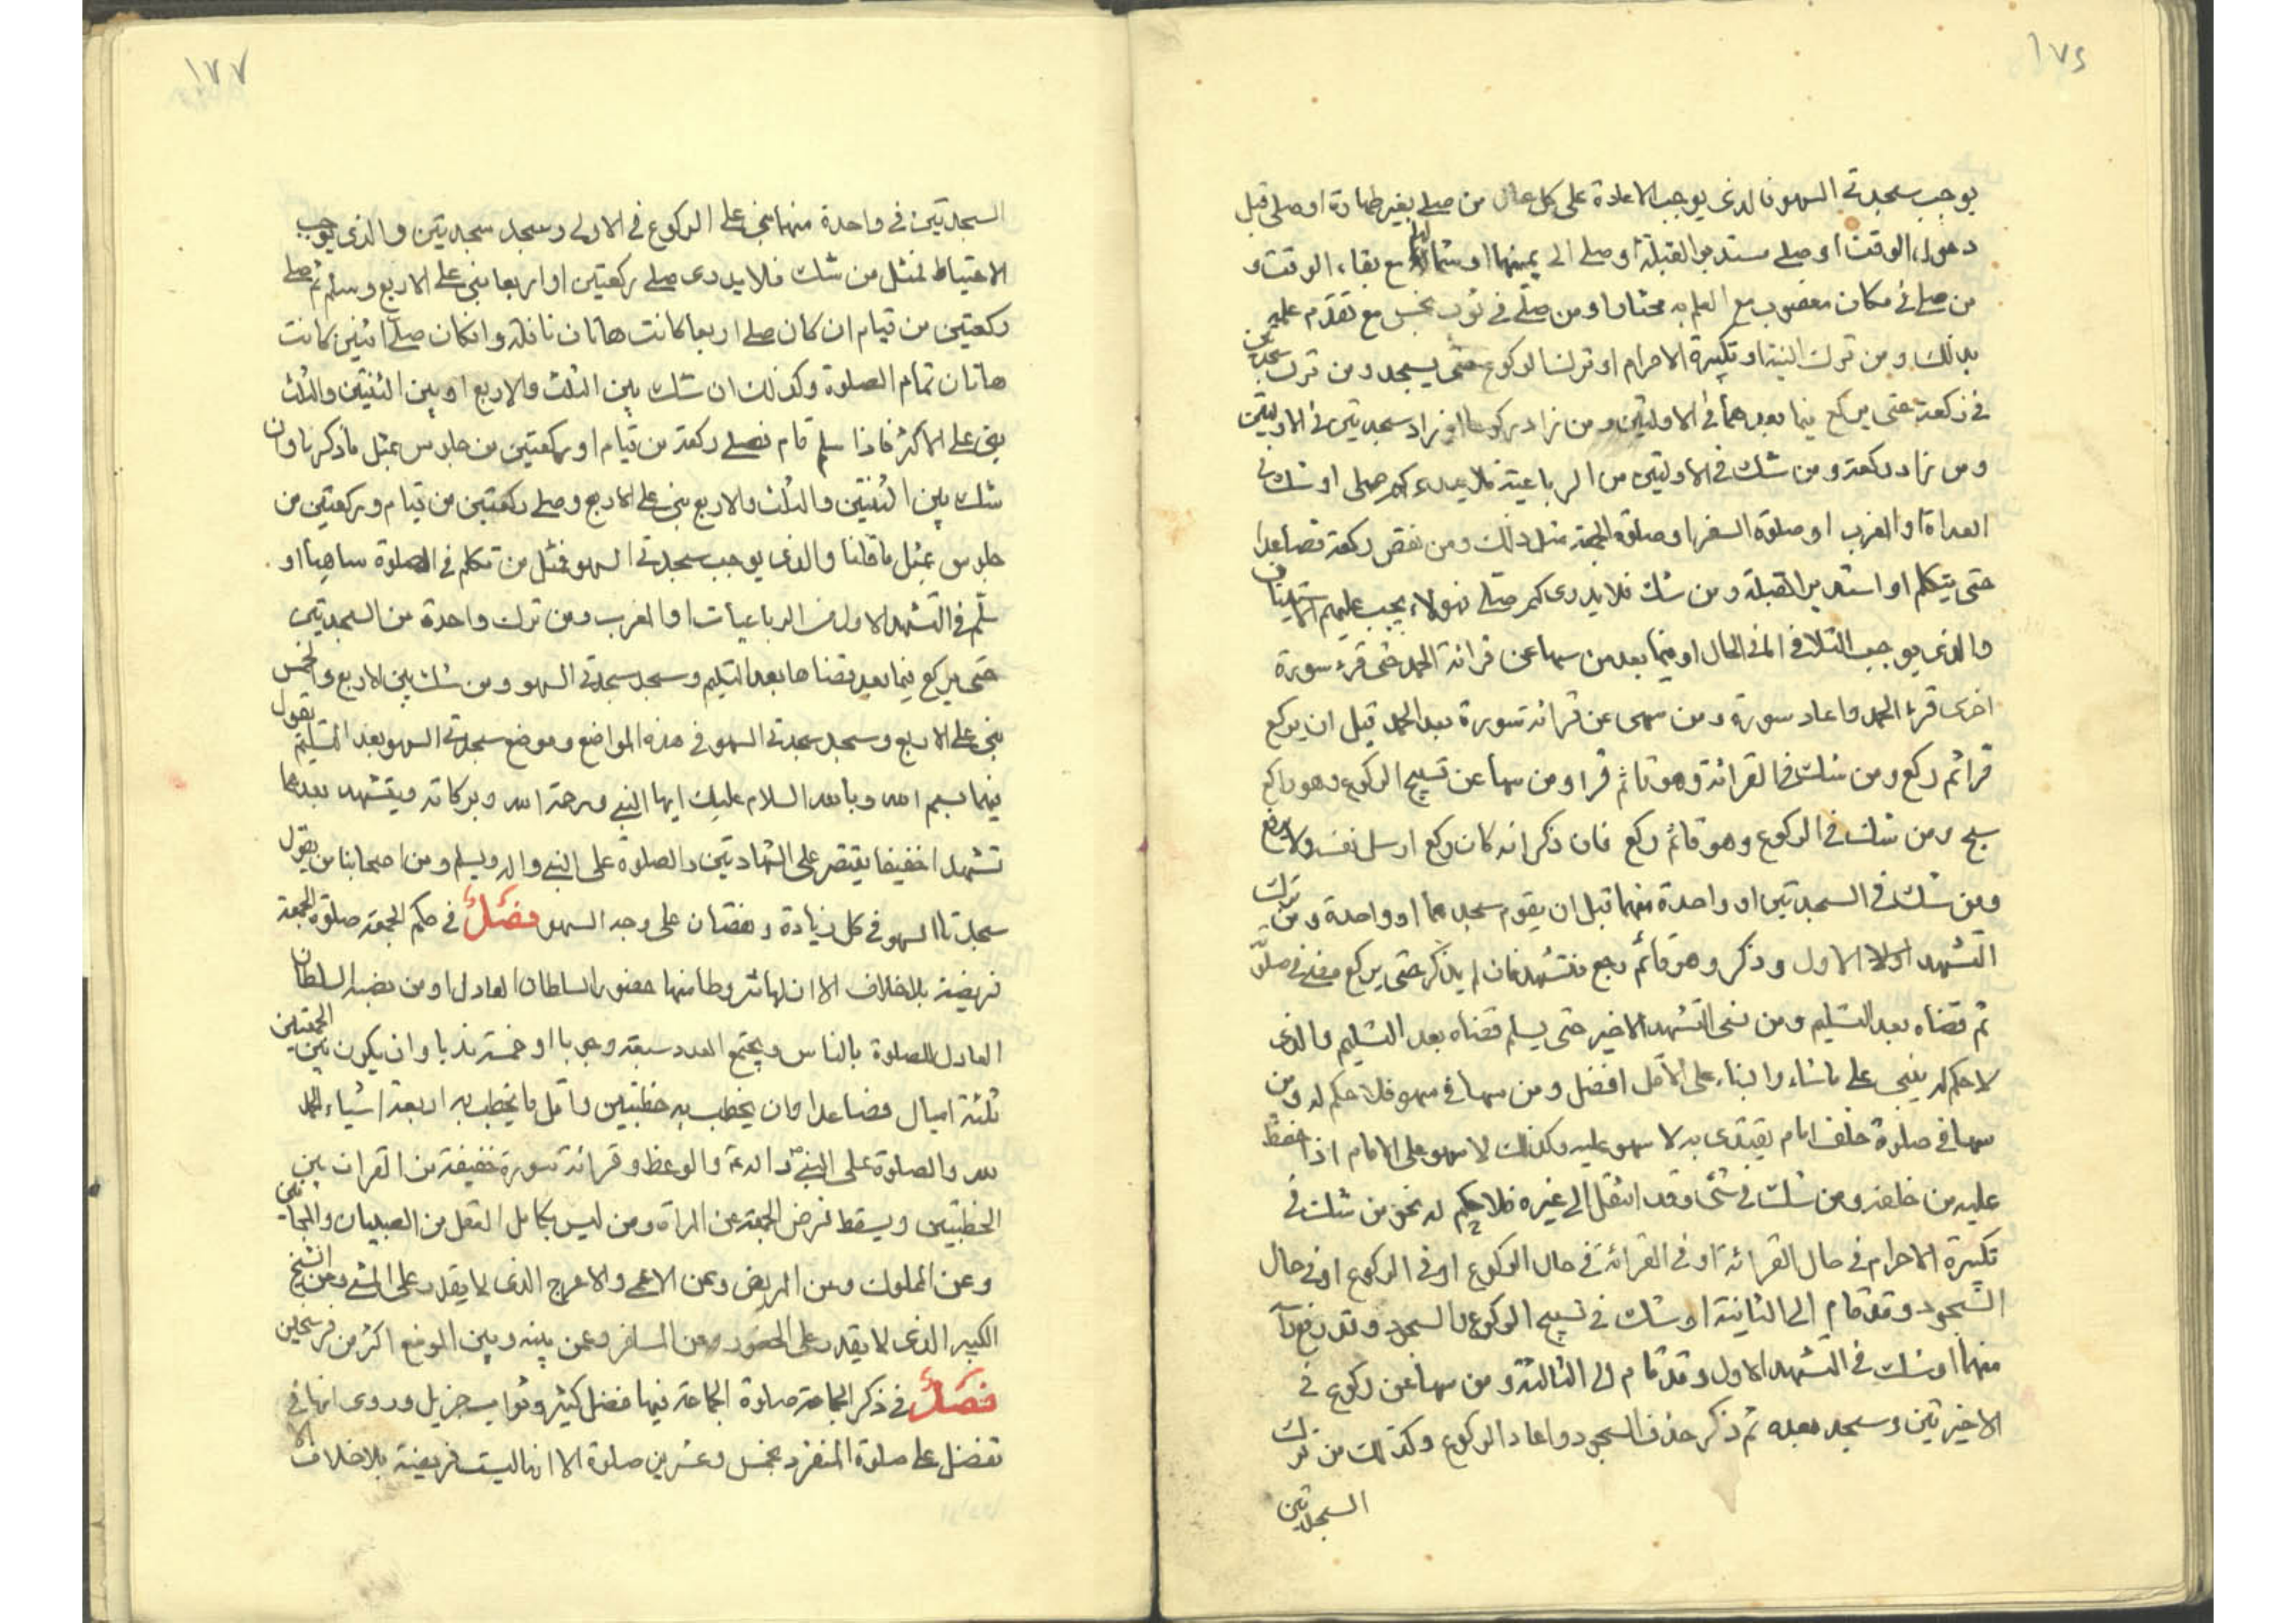 ١٧٤
يوجب سجدتى السهو فالذى يوجب الاعادة على كل حال من صلى بغير طهارة او صلى قبل
دخول الوقت او صلى مستدبر القبلة او صلى الى يمينها او شمالها مع بقاء الوقت و
من صلى فى مكان مغصوب مع العلم به مختارا ومن صلى فى ثوب نجس مع تقدم علمه
بذلك ومن ترك النية او تكبيرة الاحرام او ترك الركوع حتى يسجد ومن ترك سجدتين
فى ركعة حتى يركع فيما بعدهما فى الاولتين ومن زاد ركوعا او زاد سجدتين فى الاولتين
ومن زاد ركعة ومن شك فى الاولتين من الرباعية فلا يدرى كم صلى او شك فى
الغداة او المغرب او صلوة السفر او صلوة الجمعة مثل ذلك ومن نقص ركعة فصاعدا
حتى يتكلم او استدبر القبلة ومن شك فلا يدرى كم صلى فهولاء يجب عليهم الاستيناف
والذى يوجب التلافى اما فى الحال او فيما بعد من سها عن قرائة الحمد حتى قرء سورة
اخرى قرء الحمد واعاد سورة ومن سهى عن قرائة سورة بعد الحمد قبل ان يركع
قرا ثم ركع ومن شك فى القرائة وهو قائم قرا ومن سها عن تسبيح الركوع وهو راكع
سبح ومن شك فى الركوع وهو قائم ركع فان ذكر انه كان ركع ارسل نفسه ولا يرفع
ومن شك فى السجدتين او واحدة منهما قبل ان يقوم سجدهما او واحدة ومن ترك
التشهد الاول وذكر وهو قائم رجع فتشهد فان لم يذكر حتى يركع مضى فى صلوته
ثم قضاه بعد التسليم ومن نسى التشهد الاخير حتى يسلم قضاه بعد التسليم والذى
لا حكم له يبنى على ما شاء والبناء على الاقل افضل ومن سها فى سهو فلا حكم له ومن
سها فى صلوة خلف امام يقتدى به لا سهو عليه وكذلك لا سهو على الامام اذا حفظ
عليه من خلفه ومن شك فى شئ وقد انتقل الى غيره فلا حكم له نحو من شك فى
تكبيرة الاحرام فى حال القرائة او فى القرائة فى حال الركوع او فى الركوع او فى حال
السجود وقد قام الى الثانية او شك فى تسبيح الركوع والسجود وقد رفع رأسه
منهما او شك فى التشهد الاول وقد قام الى الثالثة ومن سها عن ركوع فى
الاخيرتين وسجد بعده ثم ذكر حذف السجود واعاد الركوع وكذلك من ترك
السجدتين
١٧٧
السجدتين فى واحدة منهما بنى على الركوع فى الاولى وسجد سجدتين والذى يوجب
الاحتياط فمثل من شك فلا يدرى صلى ركعتين او اربعا بنى على الاربع وسلم ثم صلى
ركعتين من قيام ان كان صلى اربعا كانت هاتان نافلة وان كان صلى اثنين كانت
هاتان تمام الصلوة وكذلك ان شك بين الثلث والاربع او بين الثنتين والثلث
بنى على الاكثر فاذا سلم قام فصلى ركعة من قيام او ركعتين من جلوس بمثل ما ذكرنا وان
شك بين الثنتين والثلث والاربع بنى على الاربع وصلى ركعتين من قيام وركعتين من
جلوس بمثل ما قلنا والذى يوجب سجدتى السهو فمثل من تكلم فى الصلوة ساهيا او
سلم فى التشهد الاول من الرباعيات او المغرب ومن ترك واحدة من السجدتين
حتى يركع فيما بعد قضاها بعد التسليم وسجد سجدتى السهو ومن شك بين الاربع والخمس
بنى على الاربع وسجد سجدتى السهو فى هذه المواضع وموضع سجدتى السهو بعد التسليم يقول
فيهما بسم الله وبالله السلام عليك ايها النبى ورحمة الله وبركاته ويتشهد بعدهما
تشهدا خفيفا يقتصر على الشهادتين والصلوة على النبى واله ويسلم ومن اصحابنا من يقول
سجدتا السهو فى كل زيادة ونقصان على وجه السهو فصل فى حكم الجمعة صلوة الجمعة
فريضة بلا خلاف الا ان لها شروطا منها حضور السلطان العادل او من نصبه السلطان
العادل للصلوة بالناس ويجتمع العدد سبعة وجوبا او خمسة ندبا وان يكون بين الجمعتين
ثلثة اميال فصاعدا وان يخطب به خطبتين واقل ما يخطب به اربعة اشياء الحمد
لله والصلوة على النبى واله والوعظ وقرائة سورة خفيفة من القران بين
الخطبتين ويسقط فرض الجمعة عن المراة ومن ليس بكامل العقل من الصبيان والمجانين
وعن المملوك وعن المريض وعن الاعمى والاعرج الذى لا يقدر على المشى وعن الشيخ
الكبير الذى لا يقدر على الحضور وعن المسافر وعمن بينه وبين الموضع اكثر من فرسخين
فصل فى ذكر الجماعة صلوة الجماعة فيها فضل كثير وثواب جزيل وروى انها فى
تفضل على صلوة المنفرد بخمس وعشرين صلوة الا انها ليست فريضة بلا خلاف الا